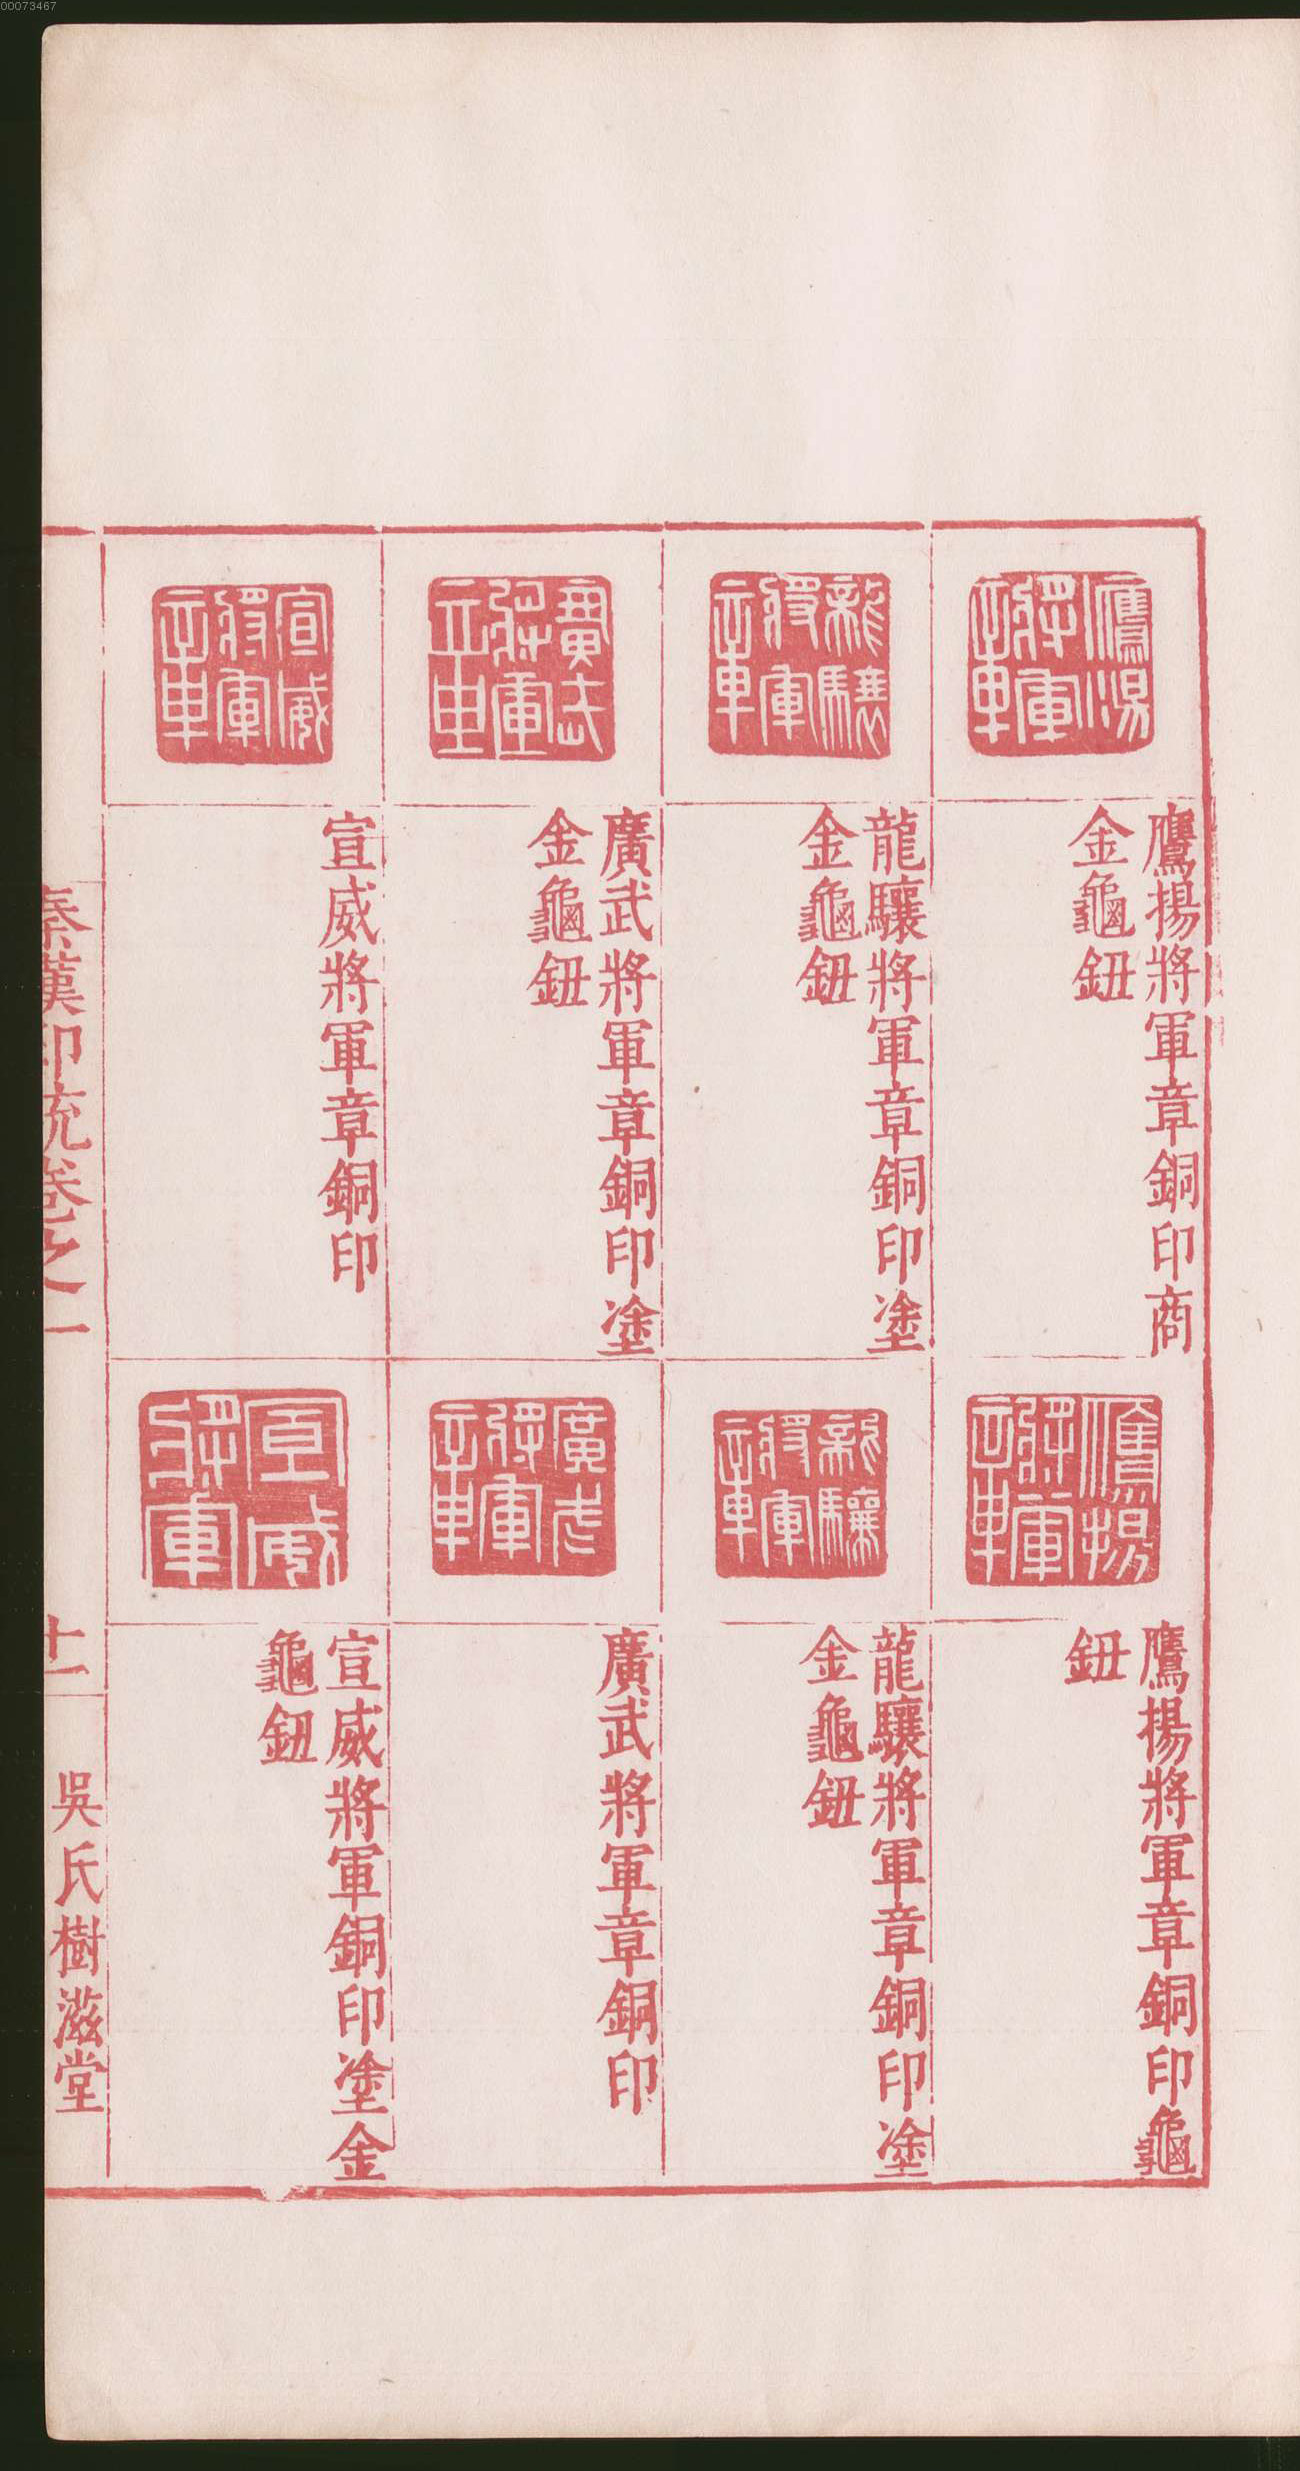 00073467
鷹揚將軍章
鷹揚將軍章銅印商
金龜鈕
龍驤將軍章
龍驤將軍章銅印塗
金龜鈕
廣武將軍章
廣武將軍章銅印塗
金龜鈕
宣威將軍章
宣威將軍章銅印
鷹揚將軍章
鷹揚將軍章銅印龜
鈕
龍驤將軍章
龍驤將軍章銅印塗
金龜鈕
廣武將軍章
廣武將軍章銅印
宣威將軍
宣威將軍銅印塗金
龜鈕
秦漢印統卷之一
十一
吳氏樹滋堂